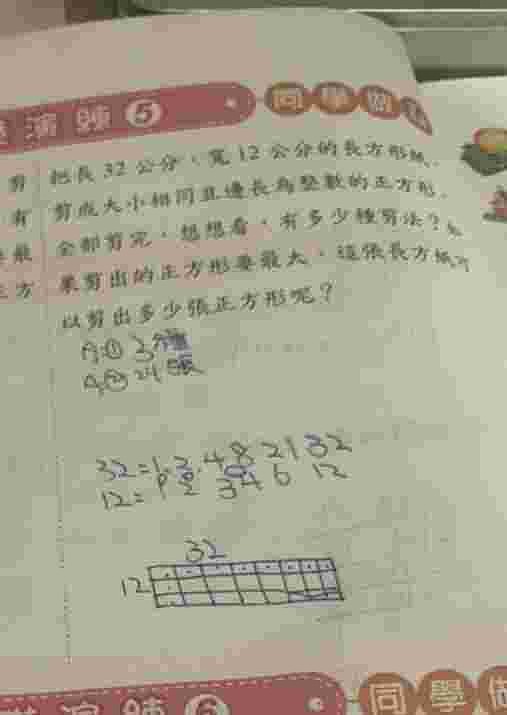 演練5 同學做
剪 把長32公分、寬12公分的長方形紙，
有 剪成大小相同且邊長為整數的正方形，
最 全部剪完，想想看，有多少種剪法？如
方 果剪出的正方形要最大，這張長方紙可
以剪出多少張正方形呢？
A:① 3種
A:② 24張
32=1.2.4 8 21 32
12=1 2 3 4 6 12
32
12
演練6 同學做